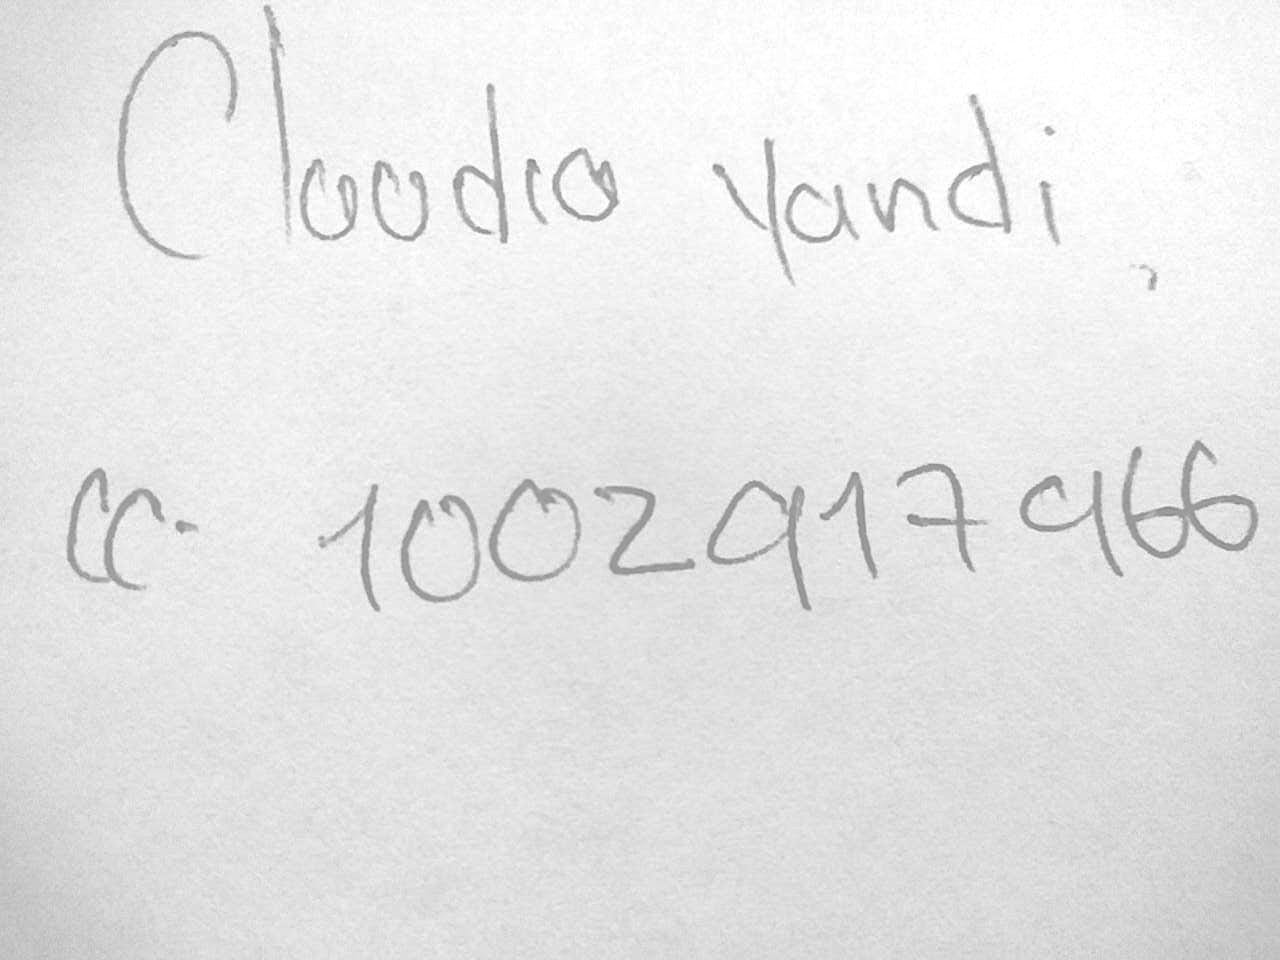 Claudio yandi
CC- 1002917966